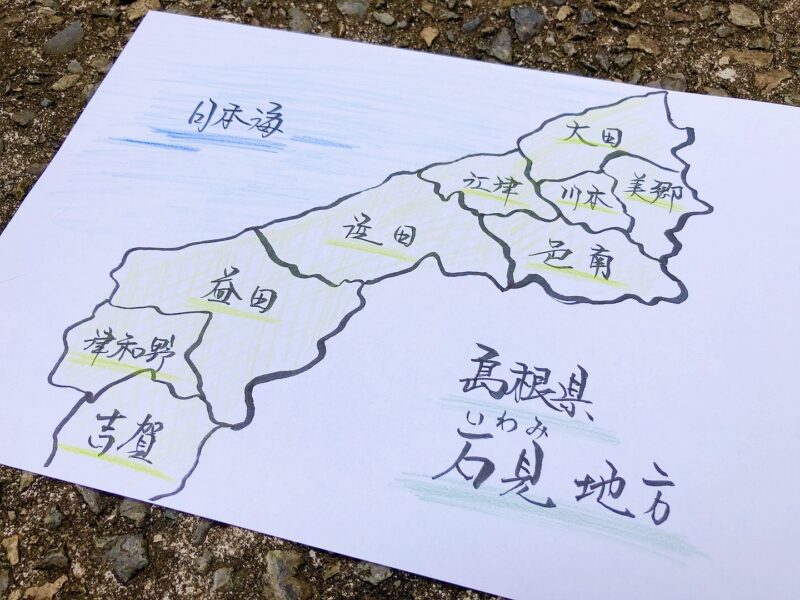 日本海
大田
江津
川本
美郷
浜田
邑南
益田
津和野
吉賀
島根県
いわみ
石見地方